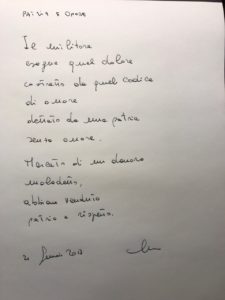 PATRIA E ONORE
Il militare
esegue quel dolore
costretto da quel codice
di onore
dettato da una patria
senza onore.
Macchiato di un denaro
maledetto,
abbiam venduto
patria e rispetto.
21 2017